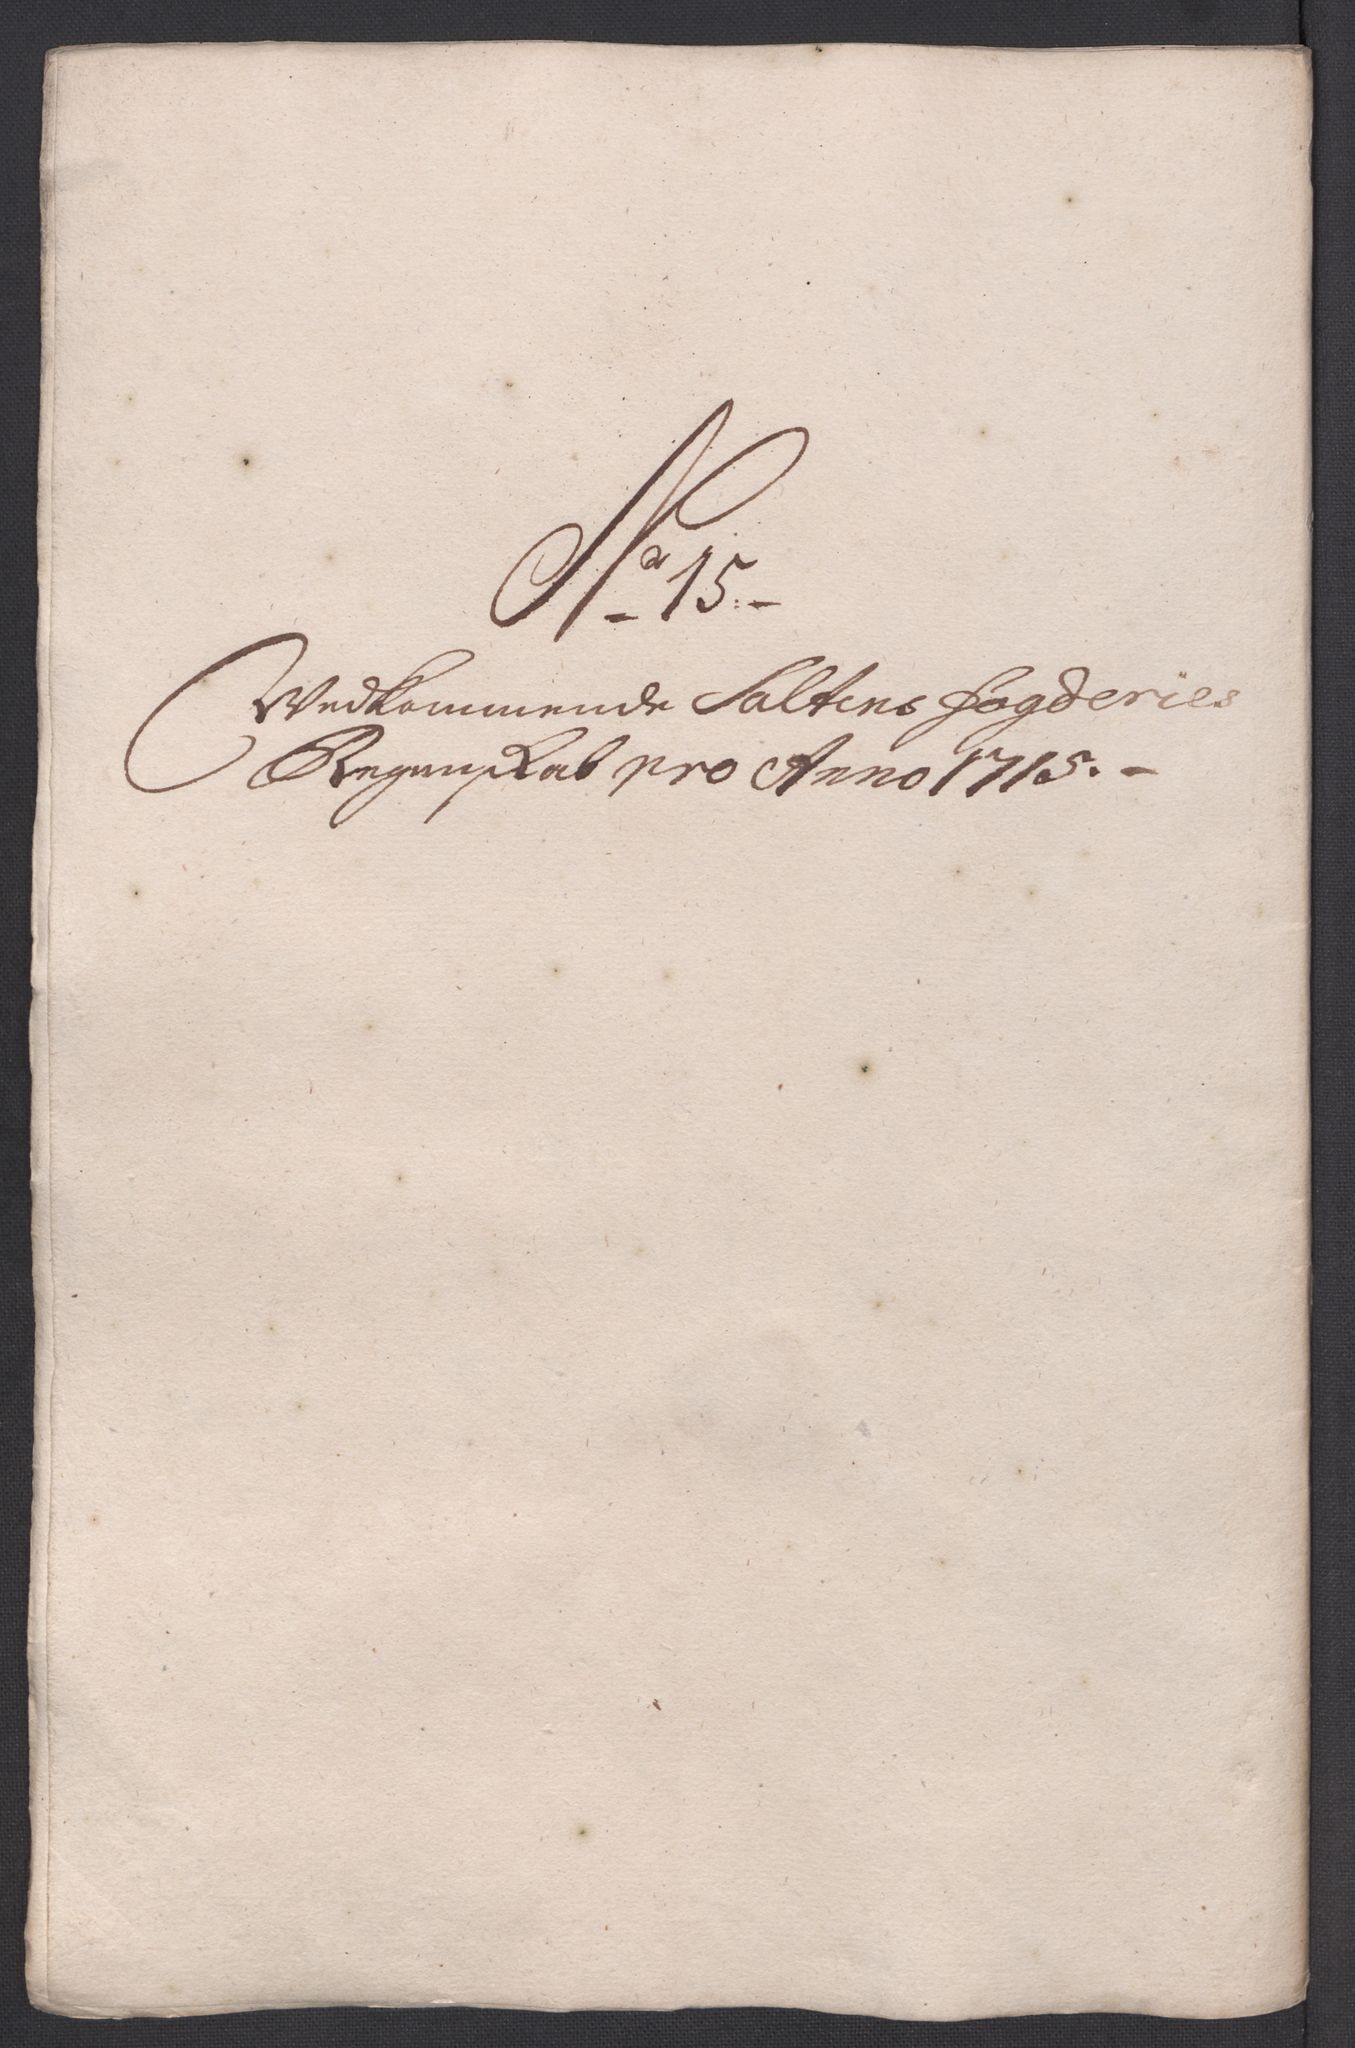 No 15.-
Vedkommende Saltens fogderies
Regenskab pro Anno 1715.-